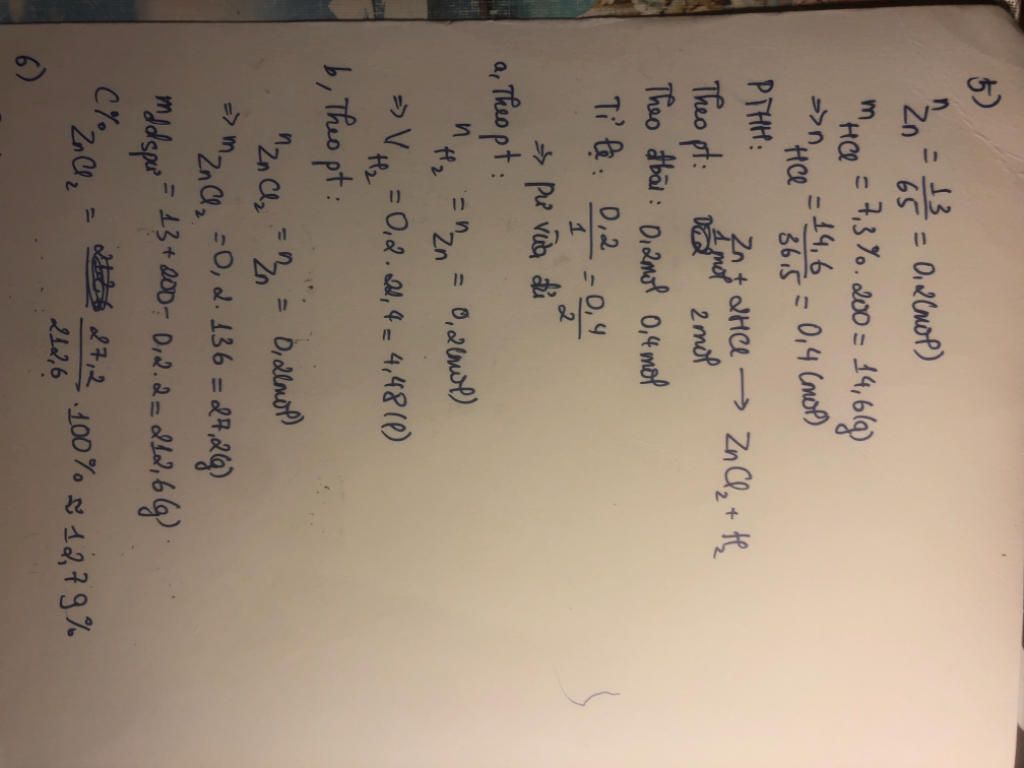 5)
n Zn = 13/65 = 0,2(mol)
m HCl = 7,3%.200 = 14,6(g)
⇒ n HCl = 14,6/36,5 = 0,4(mol)
PTHH: Zn + 2HCl → ZnCl2 + H2
Theo pt: 1mol 2mol
Theo đbài: 0,2mol 0,4mol
Tỉ lệ: 0,2/1 = 0,4/2
⇒ Pư vừa đủ
a, Theo pt:
n H2 = n Zn = 0,2(mol)
⇒ V H2 = 0,2.22,4 = 4,48(l)
b, Theo pt:
n ZnCl2 = n Zn = 0,2(mol)
⇒ m ZnCl2 = 0,2.136 = 27,2(g)
mddspư = 13+200-0,2.2 = 212,6(g).
C% ZnCl2 = 27,2/212,6 .100% ≈ 12,79%
6)